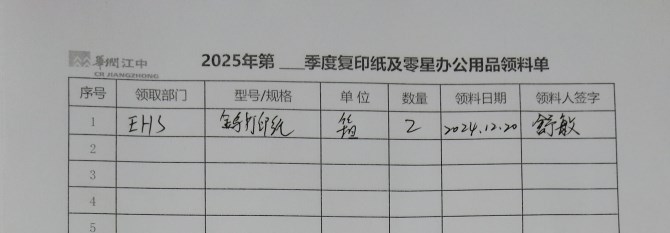 華潤江中
CR JIANGZHONG
2025年第 ___季度复印纸及零星办公用品领料单
序号 领取部门 型号/规格 单位 数量 领料日期 领料人签字
1 EHS 打印纸 2 2024.12.20 舒敏
2
3
4
5